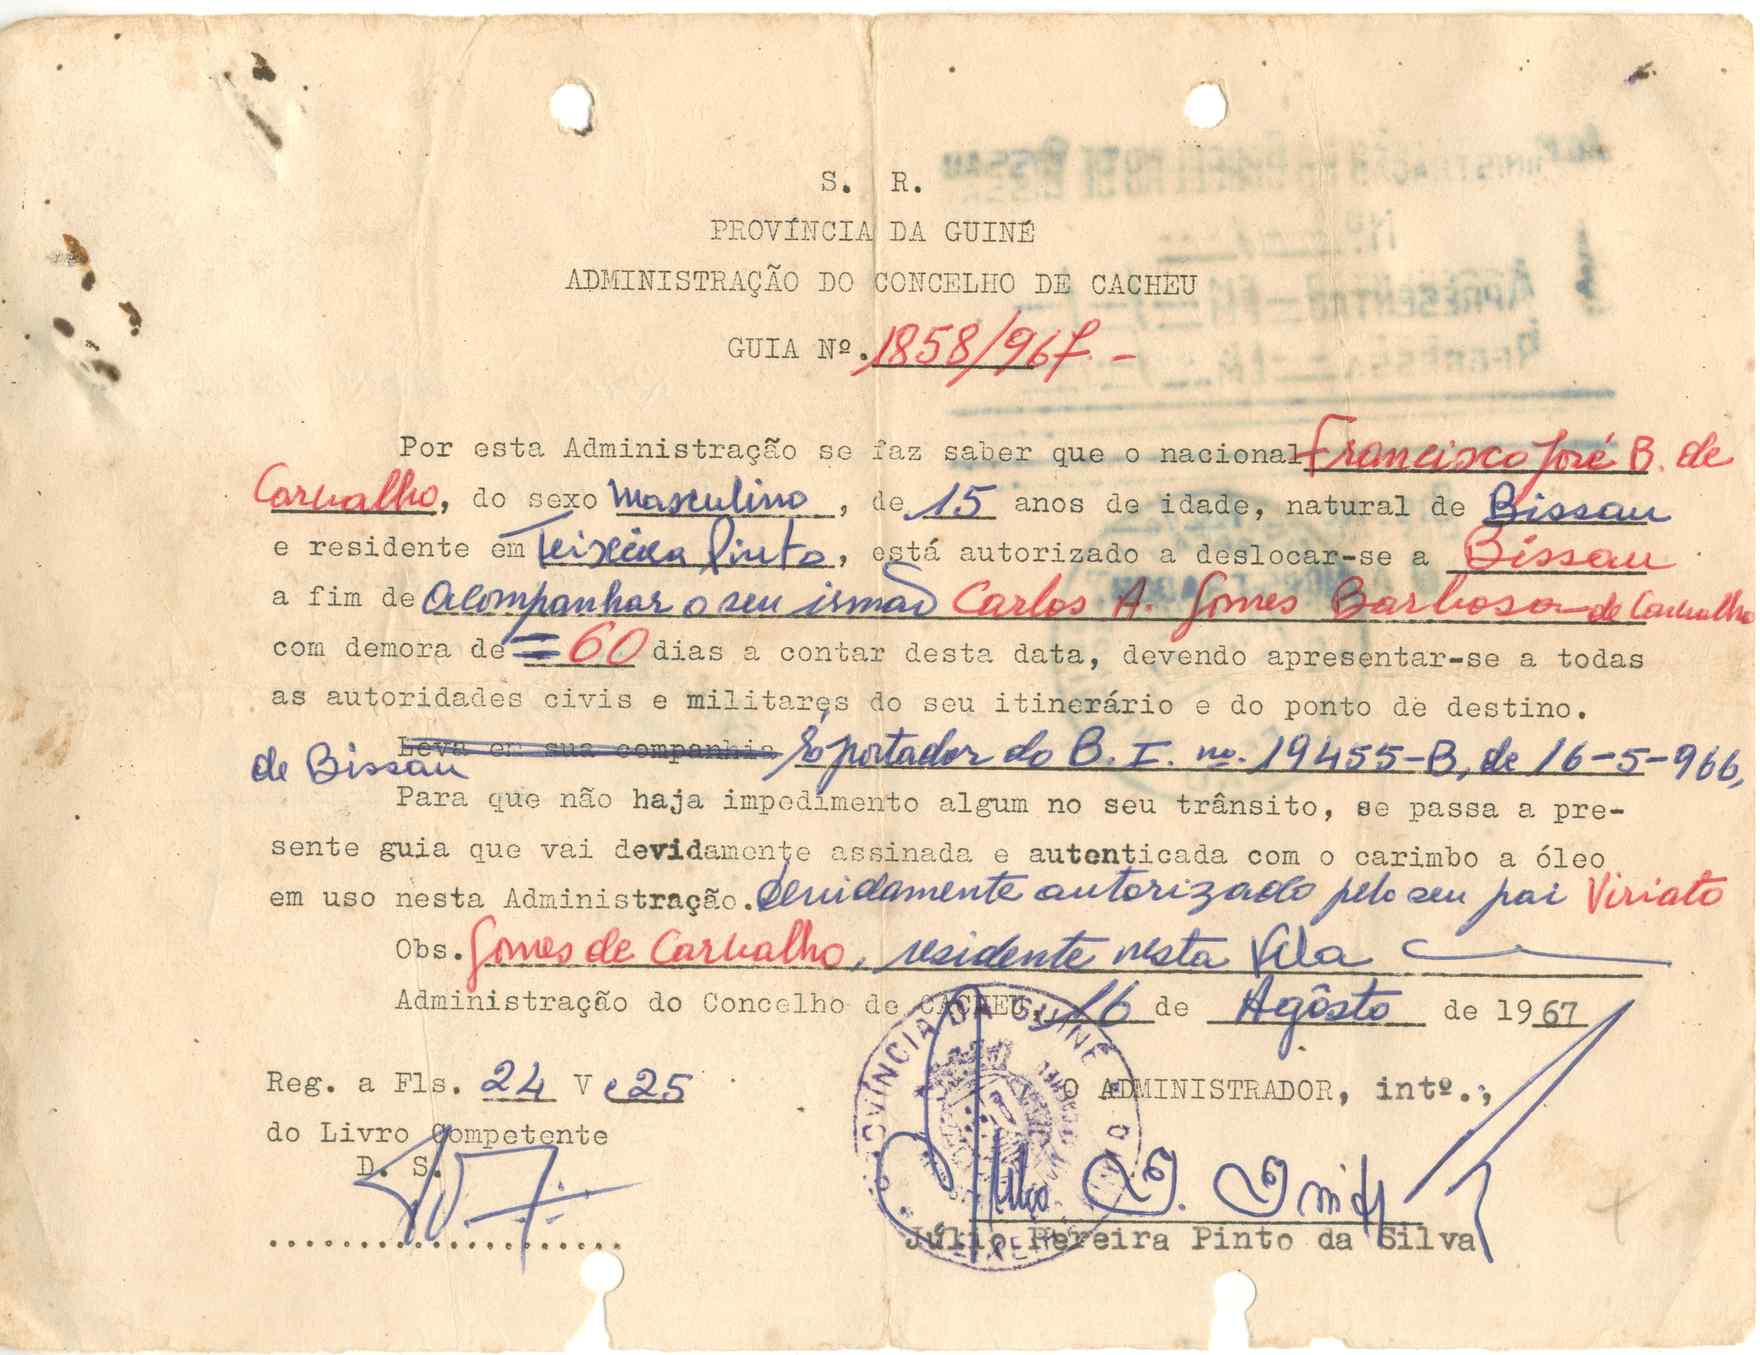 S. R.
PROVÍNCIA DA GUINÉ
ADMINISTRAÇÃO DO CONCELHO DE CACHEU
GUIA Nº. 1858/967. -
Por esta Administração se faz saber que o nacional Francisco José B. de
Carvalho, do sexo Masculino, de 15 anos de idade, natural de Bissau
e residente em Teixeira Pinto, está autorizado a deslocar-se a Bissau
a fim de acompanhar o seu irmão Carlos A. Gomes Barbosa de Carvalho
com demora de = 60 dias a contar desta data, devendo apresentar-se a todas
as autoridades civis e militares do seu itinerário e do ponto de destino.
Leva em sua companhia portador do B. I. nº. 19455-B, de 16-5-966,
de Bissau
Para que não haja impedimento algum no seu trânsito, se passa a pre-
sente guia que vai devidamente assinada e autenticada com o carimbo a óleo
em uso nesta Administração. devidamente autorizado pelo seu pai Viriato
Obs. Gomes de Carvalho, residente nesta Vila
Administração do Concelho de CACHEU, 16 de Agôsto de 1967
Reg. a Fls. 24 V e 25
O ADMINISTRADOR, intº.,
do Livro Competente
D. S.
Júlio Pereira Pinto da Silva
PROVÍNCIA DA GUINÉ